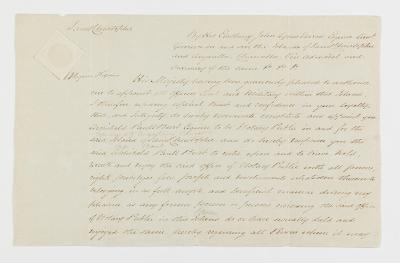 Saint Christopher
By His Excellency John Lyons Nixon Esquire Lieut
Governor in and over the Islands of Saint Christopher
and Anguilla, Chancellor, Vice Admiral and
Ordinary of the same &c &c &c
His Majesty having been graciously pleased to authorize
me to appoint all Officers Civil and Military within this Island
I therefore reposing especial trust and confidence in your Loyalty,
and Integrity do hereby nominate constitute and appoint you
Esquire to be Notary Public in and for the
said Island of Saint Christopher and do hereby authorize you the
said to take upon and to have hold
exercise and enjoy the said office of Notary Public with all powers
rights privileges fees profits and emoluments whatsoever thereunto
belonging in as full ample and beneficial manner during my
pleasure as any former person or persons exercising the said Office
of Notary Public in this Island do or have usually held and
enjoyed the same hereby requiring all Persons whom it may